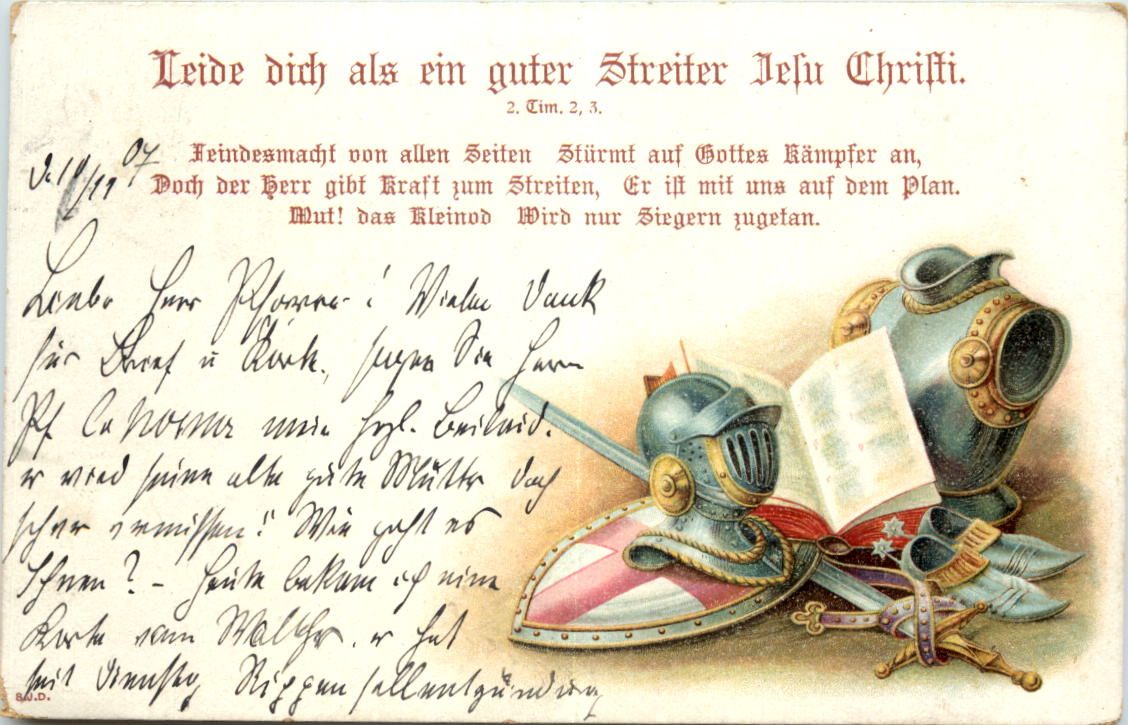 Leide dich als ein guter Streiter Jesu Christi.
2. Tim. 2, 3.
Feindesmacht von allen Seiten Stürmt auf Gottes Kämpfer an,
Doch der Herr gibt Kraft zum Streiten, Er ist mit uns auf dem Plan.
Mut! das Kleinod Wird nur Siegern zugetan.
07
Lieber Herr Pfarrer! Vielen Dank
für Brief u Karte, sagen Sie Herrn
Pf. mein herzl. Beileid.
er wird seine alte gute Mutter doch
schwer vermissen! Wie geht es
Ihnen? – Heute bekam ich eine
Karte von Walther. er hat
seit Dienstag Rippenfellentzündung
S.J.D.